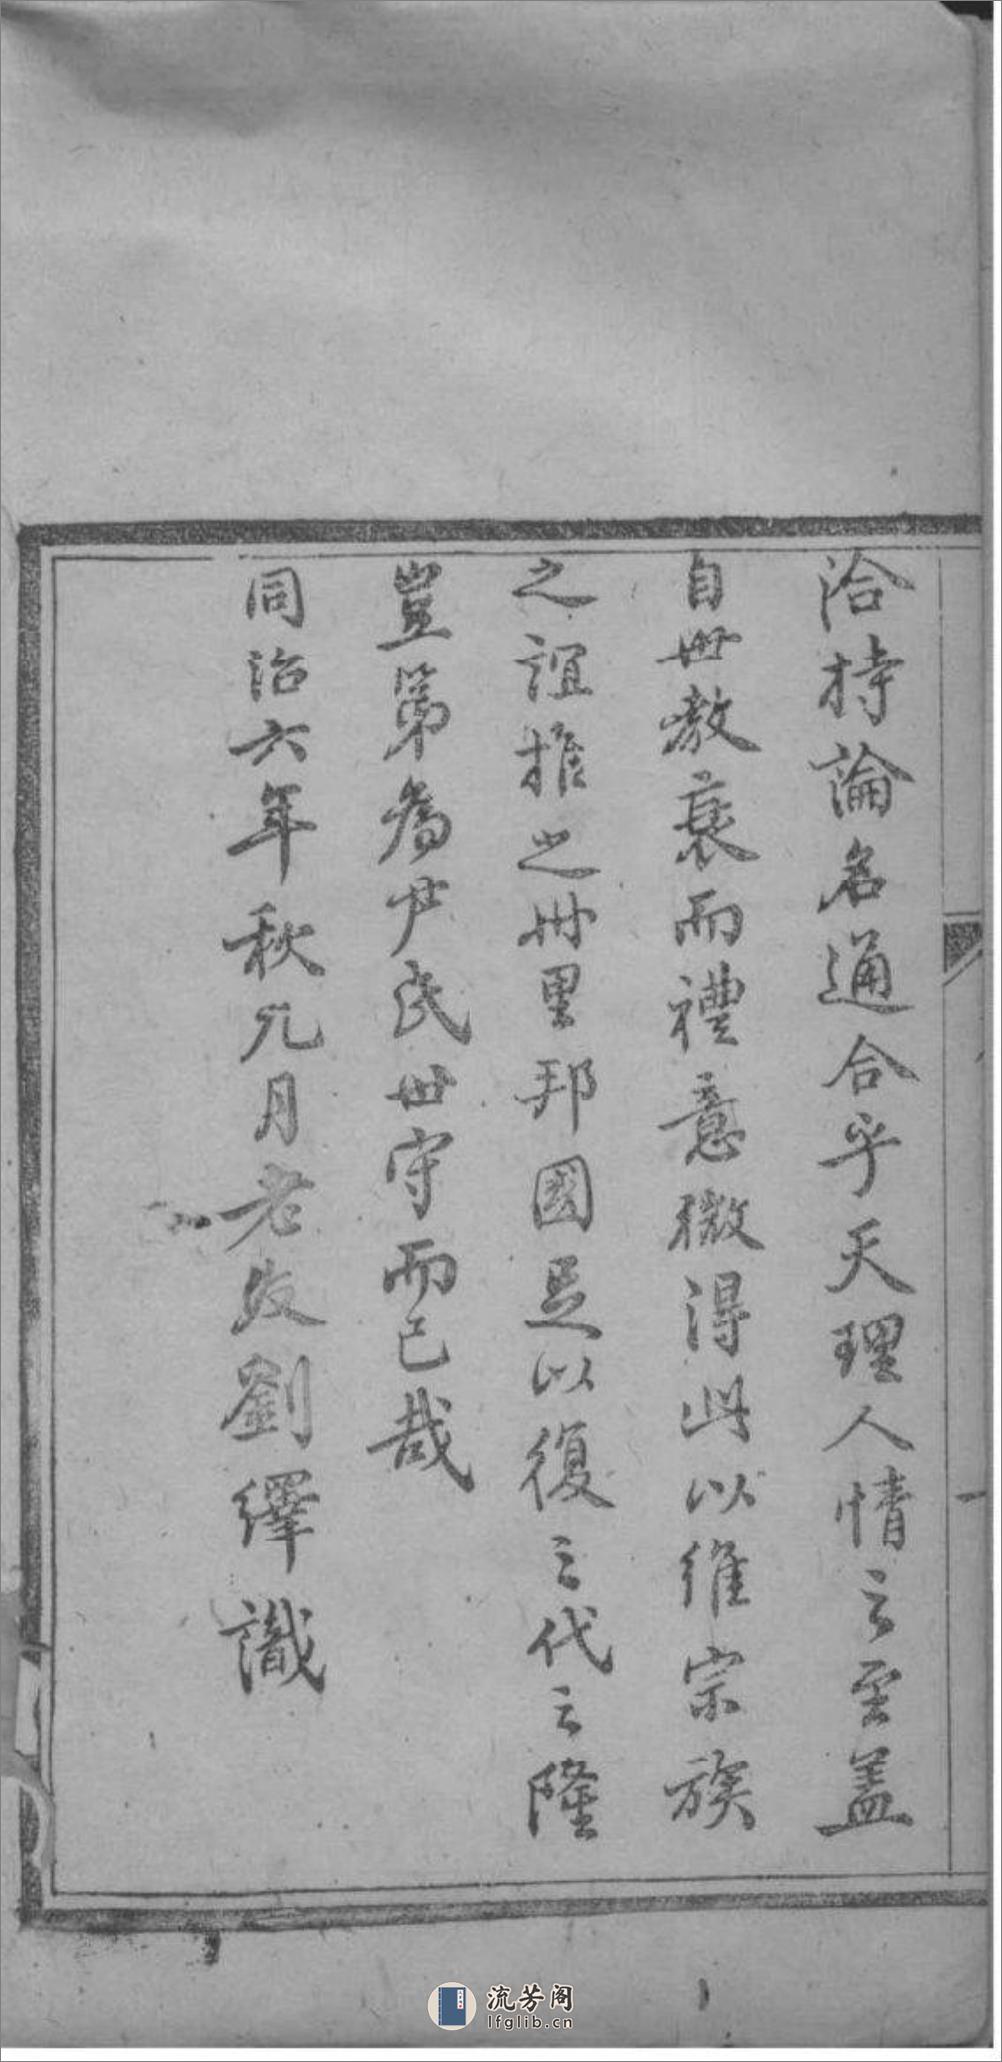 洽持論名通合乎天理人情之至蓋
自世教衰而禮意微得此以維宗族
之誼推之州里邦國足以復三代之隆
豈第為尹氏世守而已哉
同治六年秋九月老友劉繹識
流芳阁
lfglib.cn